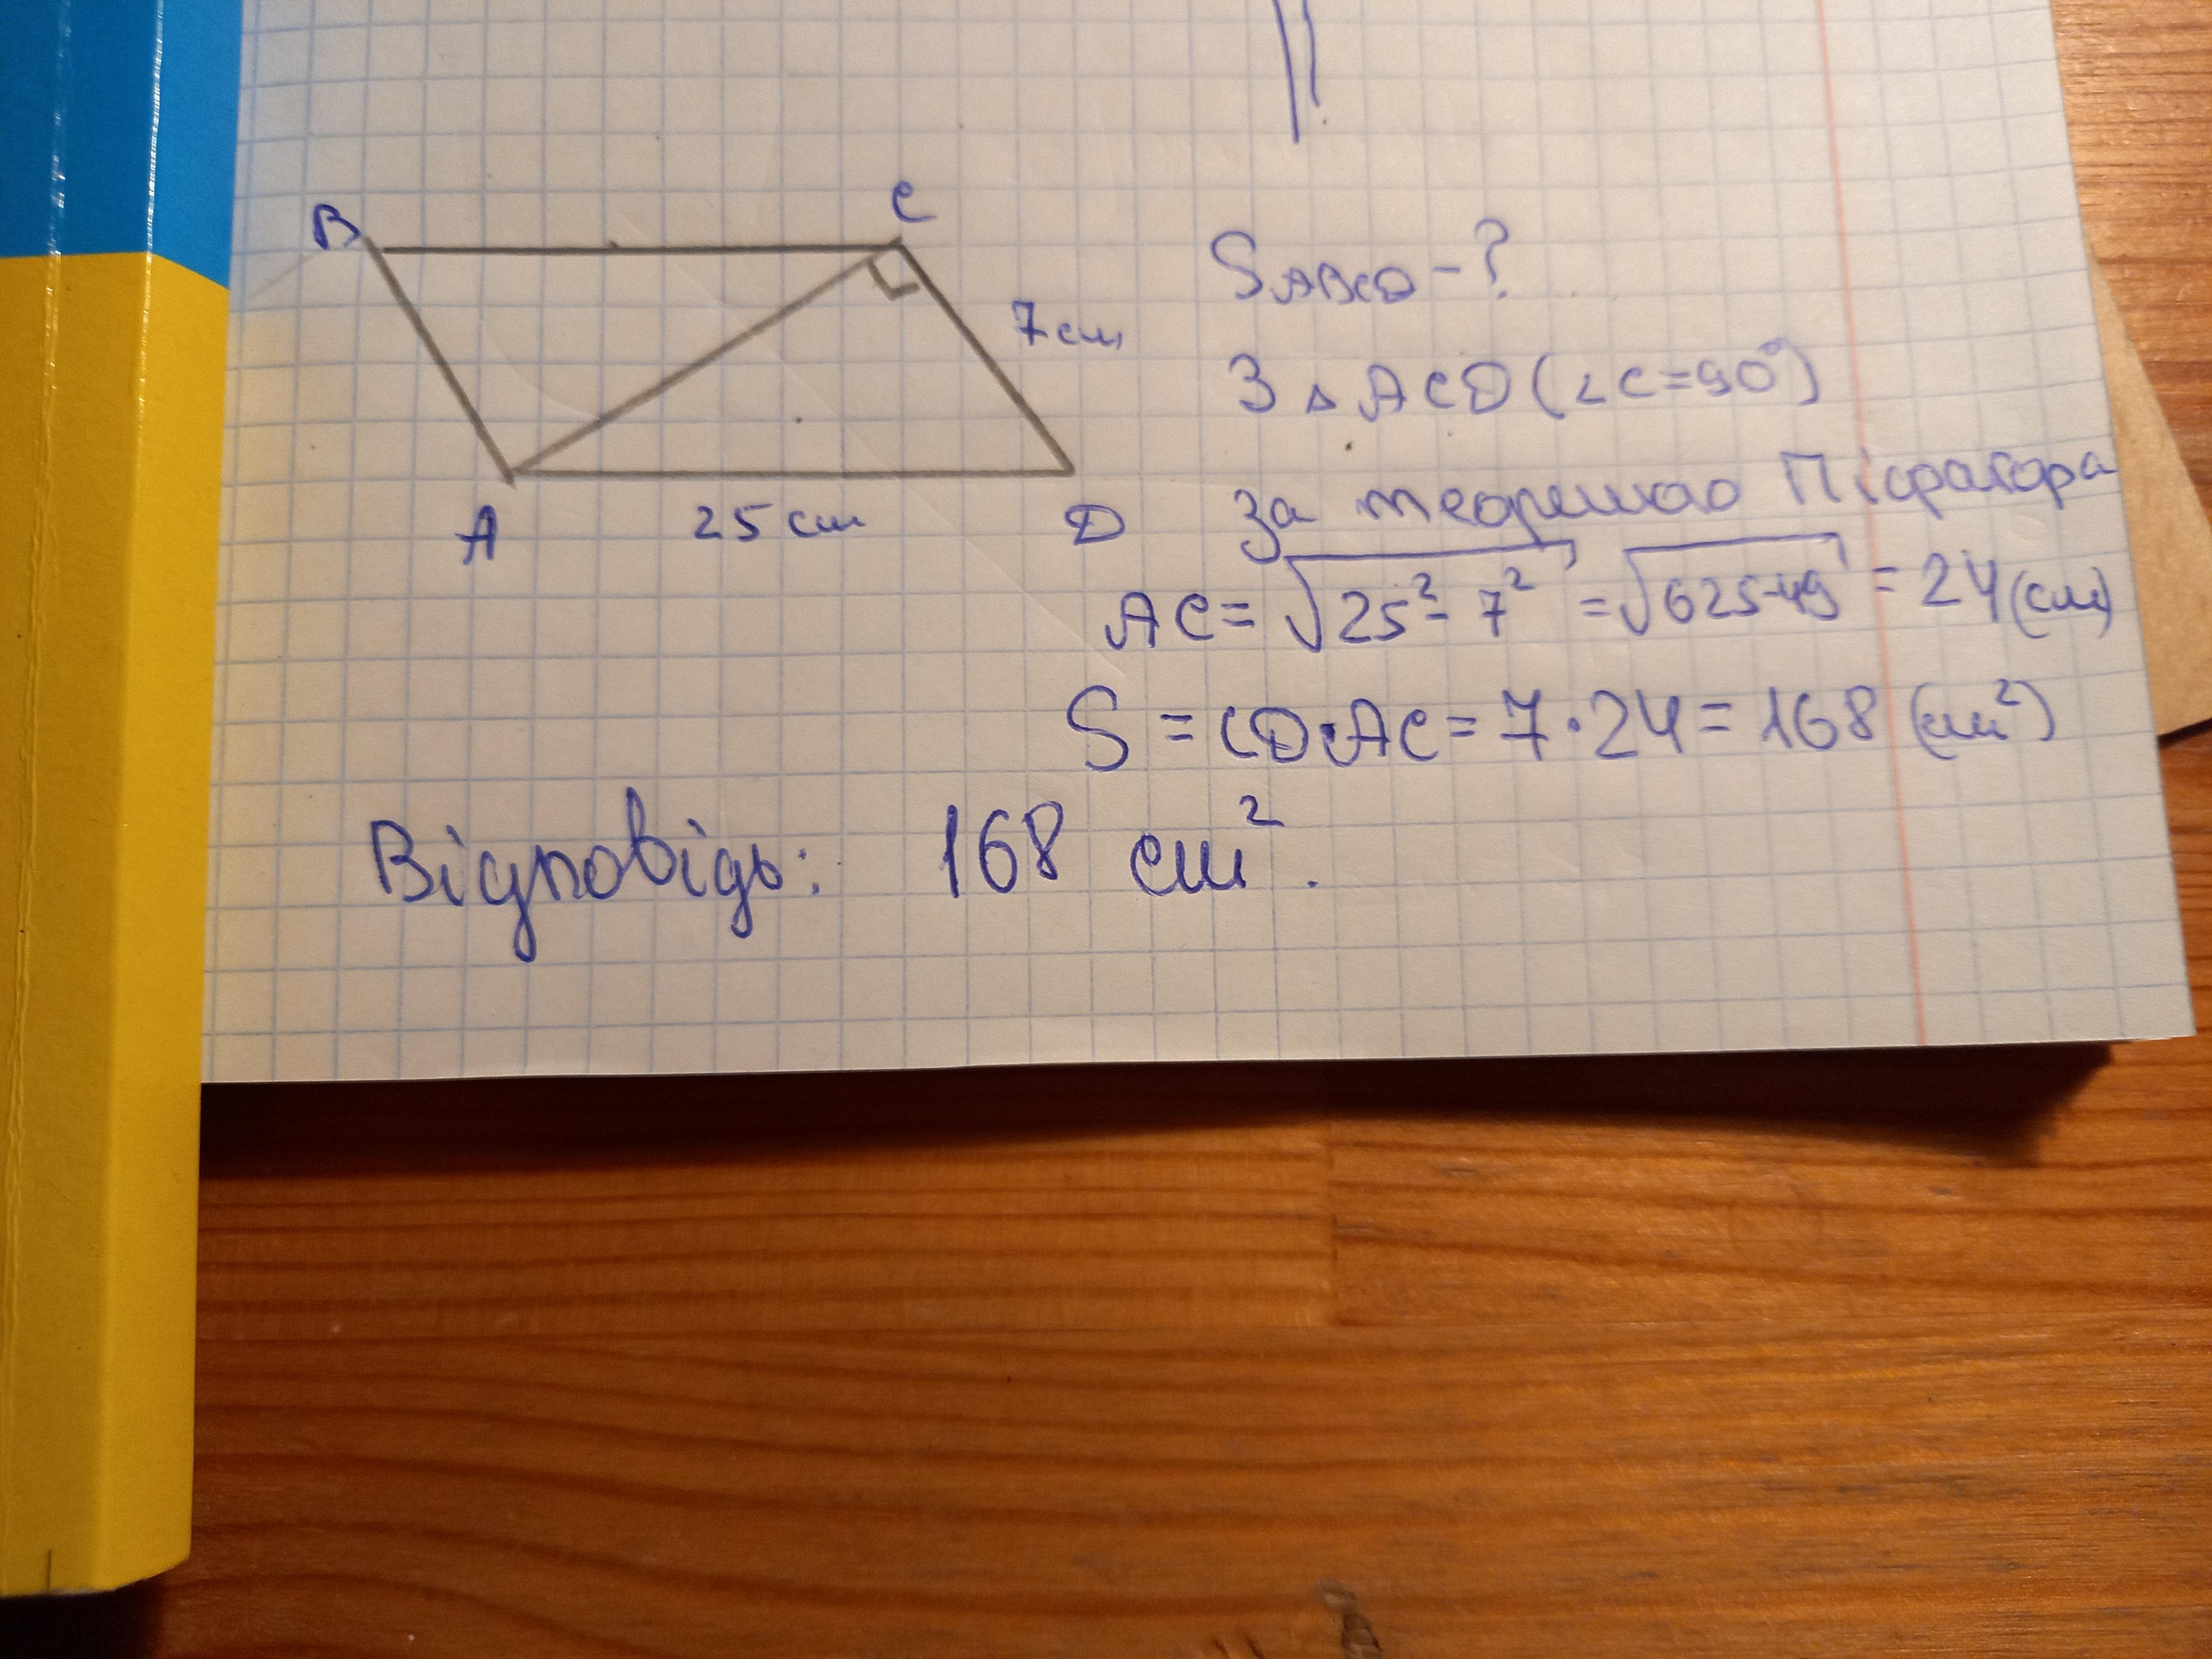 B
C
7 см
A
25 см
D
S ABCD - ?
З △ ACD (∠C=90°)
За теоремою Піфагора
AC = √25² - 7² = √625-49 = 24 (см)
S = CD·AC = 7·24 = 168 (см²)
Відповідь: 168 см².